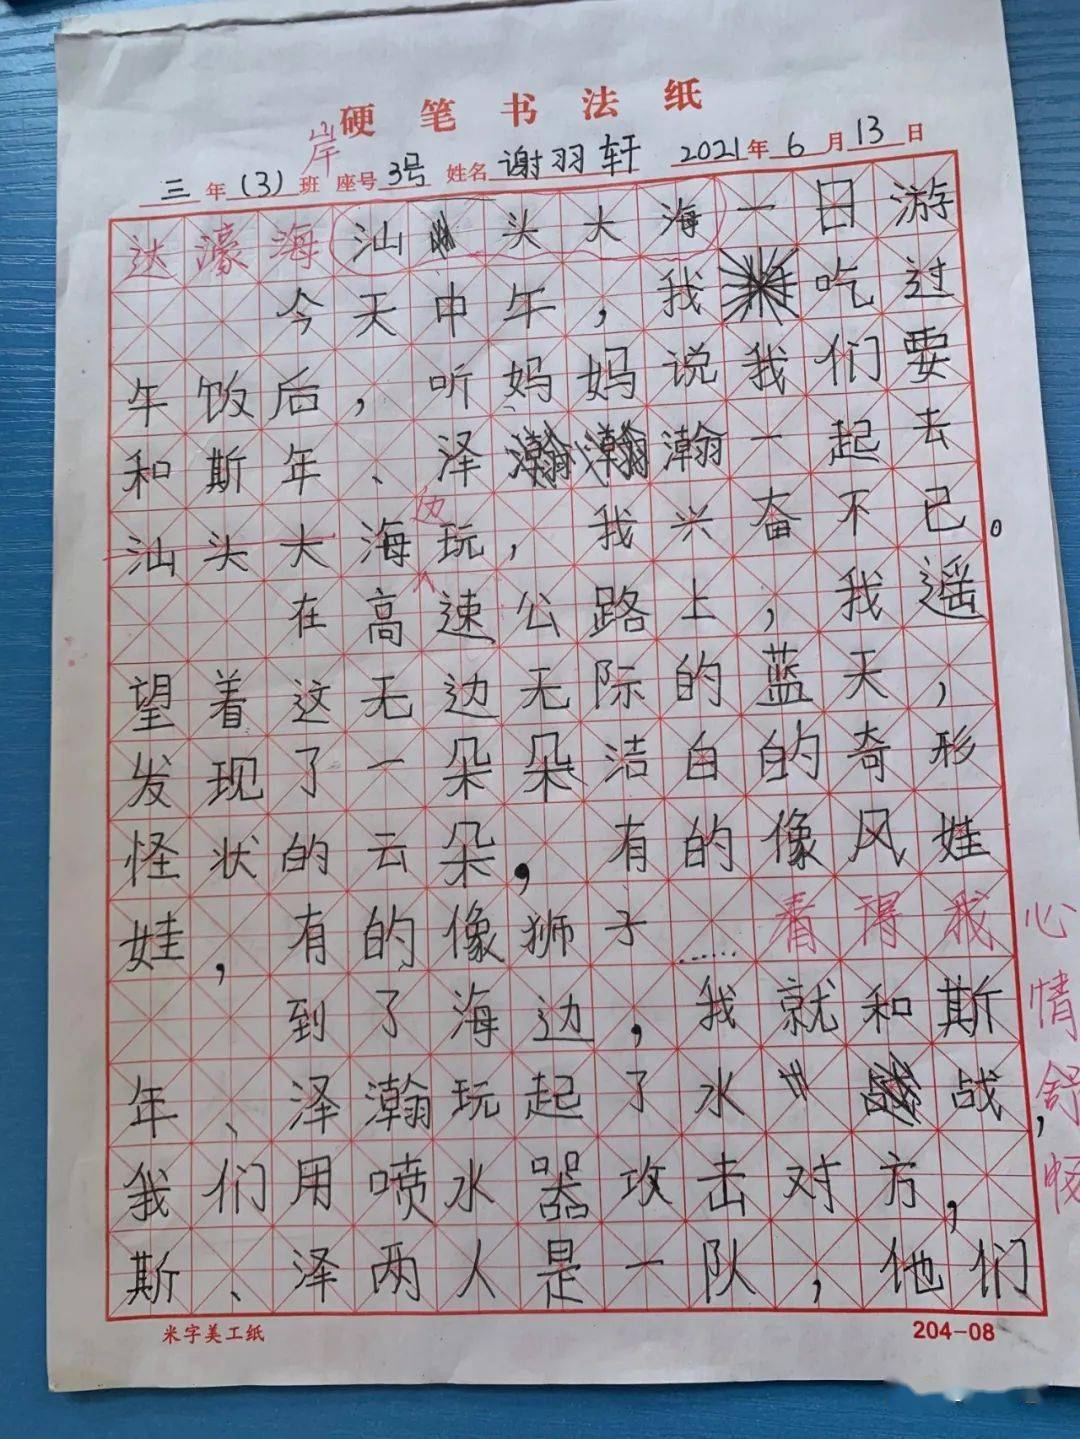 硬笔书法纸
岸
三年(3)班 座号3号 姓名谢羽轩 2021年6月13日
达濠海汕头大海一日游
今天中午，我吃过
午饭后，听妈妈说我们要
和斯年、泽瀚一起去
边
汕头大海玩，我兴奋不已。
在高速公路上，我遥
望着这无边无际的蓝天，
发现了一朵朵洁白的奇形
怪状的云朵，有的像风娃
娃，有的像狮子……看得我心
情舒
到了海边，我就和斯
年、泽瀚玩起了水战，
我们用喷水器攻击对方，
斯、泽两人是一队，他们
米字美工纸 204-08